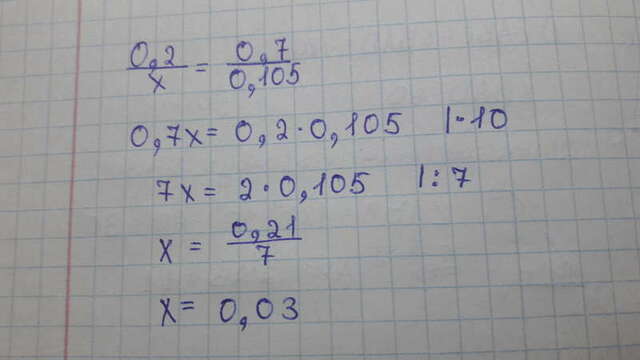 0,2/x = 0,7/0,105
0,7x = 0,2·0,105 |·10
7x = 2·0,105 |:7
x = 0,21/7
x = 0,03